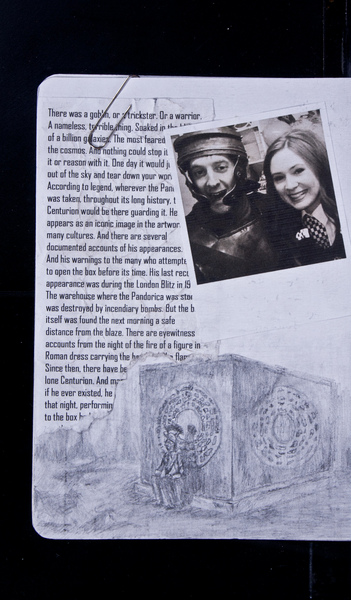 There was a goblin, or a trickster. Or a warrior.
A nameless, terrible thing. Soaked in the
of a billion galaxies. The most feared
the cosmos. And nothing could stop it
it or reason with it. One day it would
out of the sky and tear down your
According to legend, wherever the
was taken, throughout its long history,
Centurion would be there guarding it. He
appears as an iconic image in the
many cultures. And there are several
documented accounts of his appearances.
And his warnings to the many who
to open the box before its time. His last
appearance was during the London Blitz in
The warehouse where the Pandorica was
was destroyed by incendiary bombs. But the
itself was found the next morning a safe
distance from the blaze. There are
accounts from the night of the fire of a figure in
Roman dress carrying the
Since then, there have
lone Centurion. And
if he ever existed, he
that night,
to the box